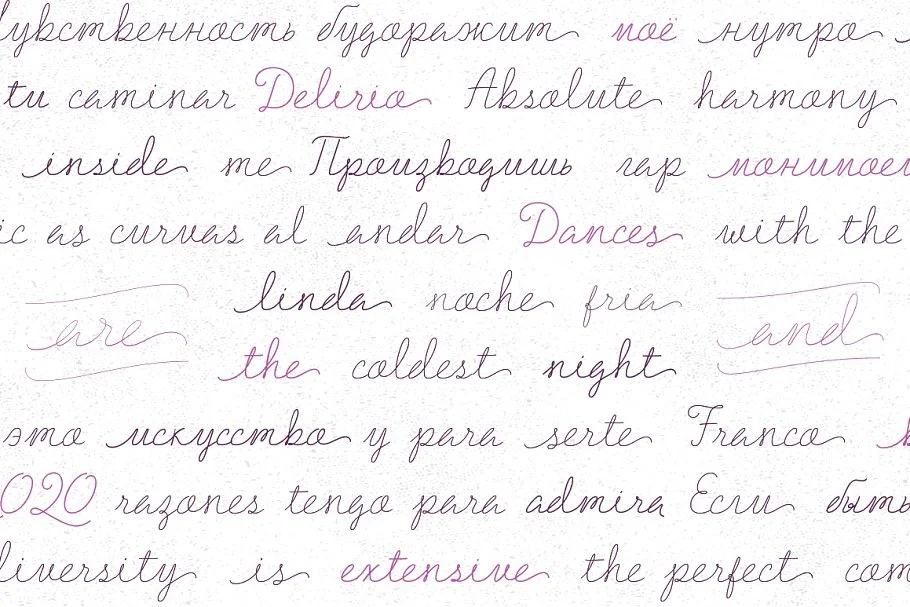 чувственность будоражит моё нутро
tu caminar Delirio Absolute harmony
inside me Производишь гар монитоги
ic as curvas al andar Dances with the
linda noche fria
are and
the coldest night
это искусство y para serte Franco
2020 razones tengo para admira Если быть
diversity is extensive the perfect com